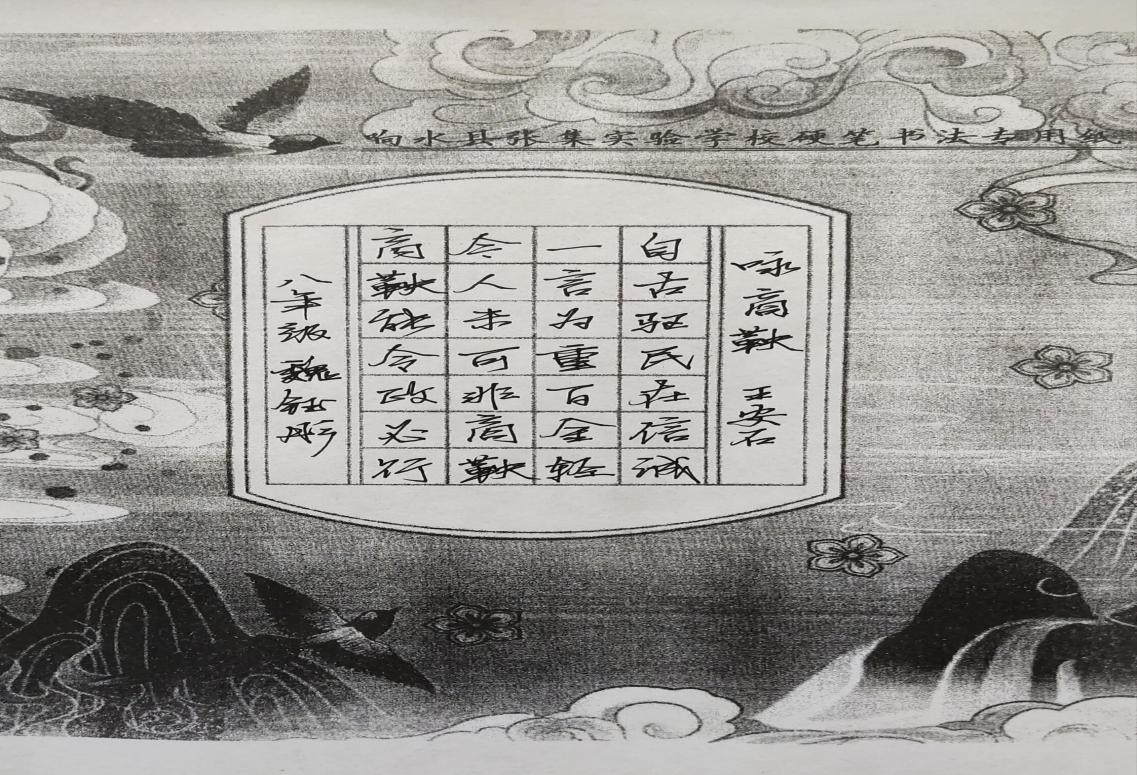 响水县张集实验学校硬笔书法专用纸
咏商鞅 王安石
自古驱民在信诚
一言为重百金轻
今人未可非商鞅
商鞅能令政必行
八年级 魏钰彤